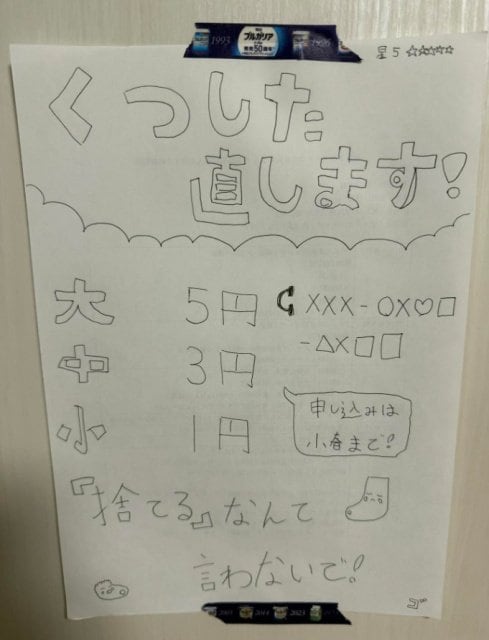 1993
明治
ブルガリア
発売50周年
星5 ☆☆☆☆☆
くつした
直します!
大 5円 XXX-OX♡□
-△X□□
中 3円
小 1円
申し込みは
小春まで!
『捨てる』なんて
言わないで!
2014 2023